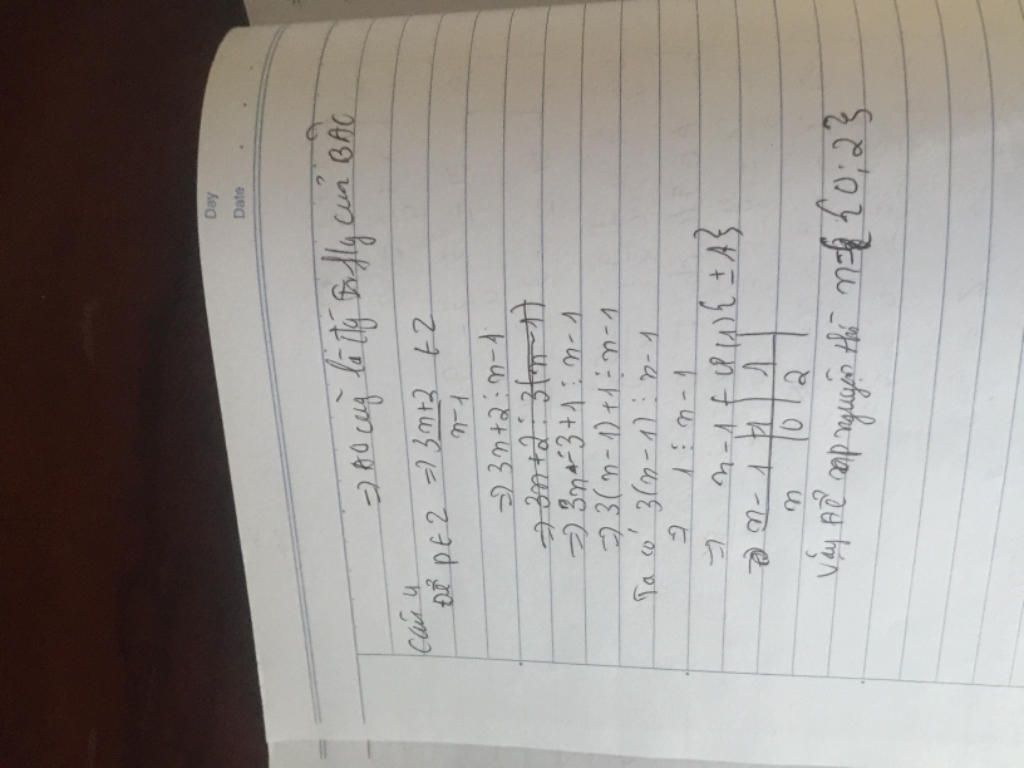 Day
Date
⇒ AC cũng là tia của BAC
Câu 4
Để p ∈ Z ⇒ 3n+2 / n-1 ∈ Z
⇒ 3n+2 ⋮ n-1
⇒ 3n+2 ⋮ 3(n-1)
⇒ 3n-3+1 ⋮ n-1
⇒ 3(n-1)+1 ⋮ n-1
Ta có 3(n-1) ⋮ n-1
⇒ 1 ⋮ n-1
⇒ n-1 ∈ Ư(1) {±1}
⇒ n-1 | -1 | 1
n | 0 | 2
Vậy để nguyên thì n = {0; 2}